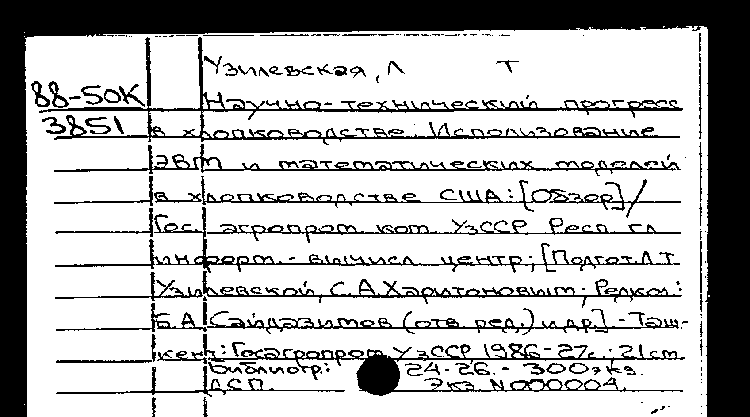 Узилевская, Л Т
88-50К
Научно-технический прогресс
3851
в хлопководстве: Использование
ЭВМ и математических моделей
в хлопководстве США: [Обзор] /
Гос. агропром. ком. УзССР Респ гл
информ.-вычисл центр; [Подгот. Л.Т.
Узилевской, С.А. Харитоновым; Редкол.:
Б.А. Сайдазимов (отв ред.) и др.] - Таш-
кент: Госагропром УзССР, 1986 - 27с.; 21 см.
Библиогр: 24-26. - 300 экз.
ДСП. Экз. N000004.